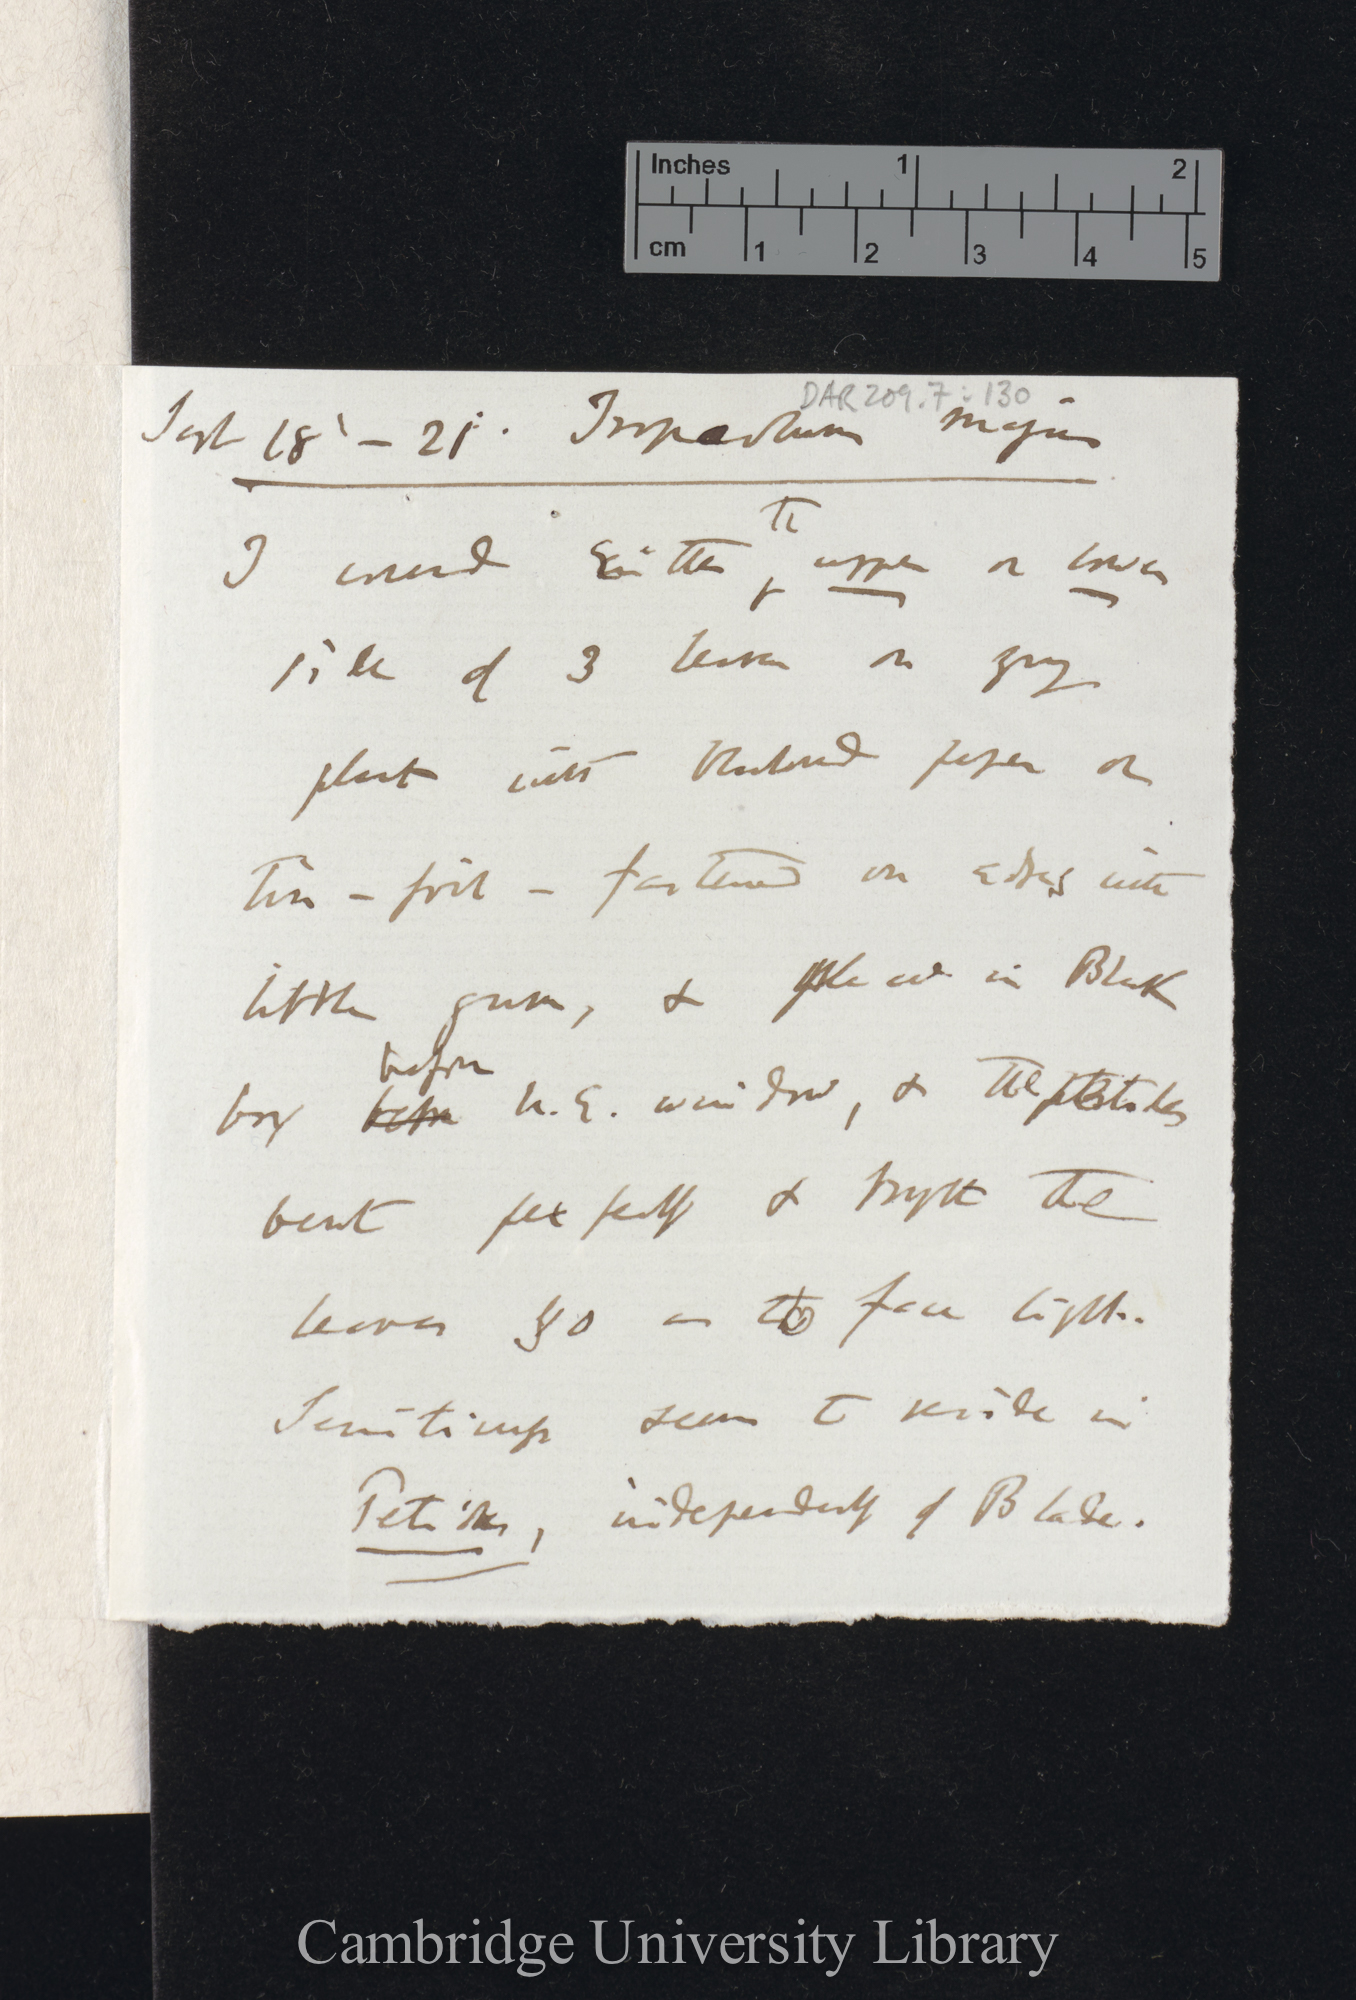 Inches 1 2
cm 1 2 3 4 5
DAR 209.7: 130
Sept 18' – 21'. Tropaeolum majus
the
I covered Either upper or lower
side of 3 leaves on young
plant with blackened paper or
tin-foil – fastened on edges with
little gum, & placed in Black
before
box before N.E. window, & the petioles
bent perfectly & brought the
leaves so as to face light.
Sensitiveness seems to reside in
Petioles, independently of Blade.
Cambridge University Library